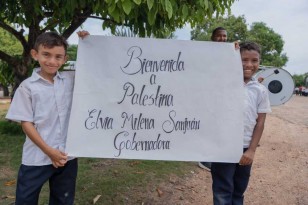 Bienvenida
a
Palestina
Elvia Milena Sanjuán
Gobernadora